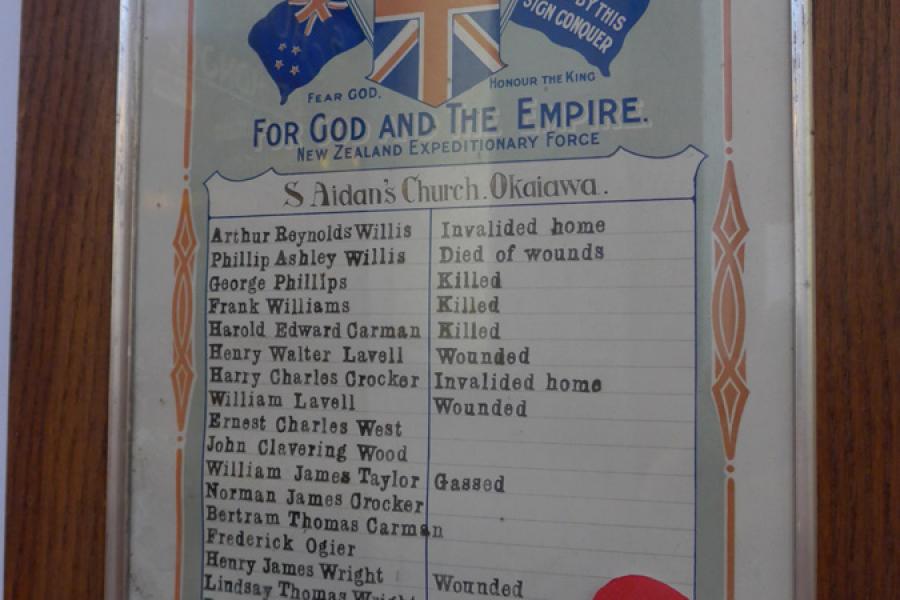 BY THIS
SIGN CONQUER
FEAR GOD.
HONOUR THE KING
FOR GOD AND THE EMPIRE.
NEW ZEALAND EXPEDITIONARY FORCE
S Aidan's Church. Okaiawa.
Arthur Reynolds Willis Invalided home
Phillip Ashley Willis Died of wounds
George Phillips Killed
Frank Williams Killed
Harold Edward Carman Killed
Henry Walter Lavell Wounded
Harry Charles Crocker Invalided home
William Lavell Wounded
Ernest Charles West
John Clavering Wood
William James Taylor Gassed
Norman James Crocker
Bertram Thomas Carman
Frederick Ogier
Henry James Wright Wounded
Lindsay Thomas Wright